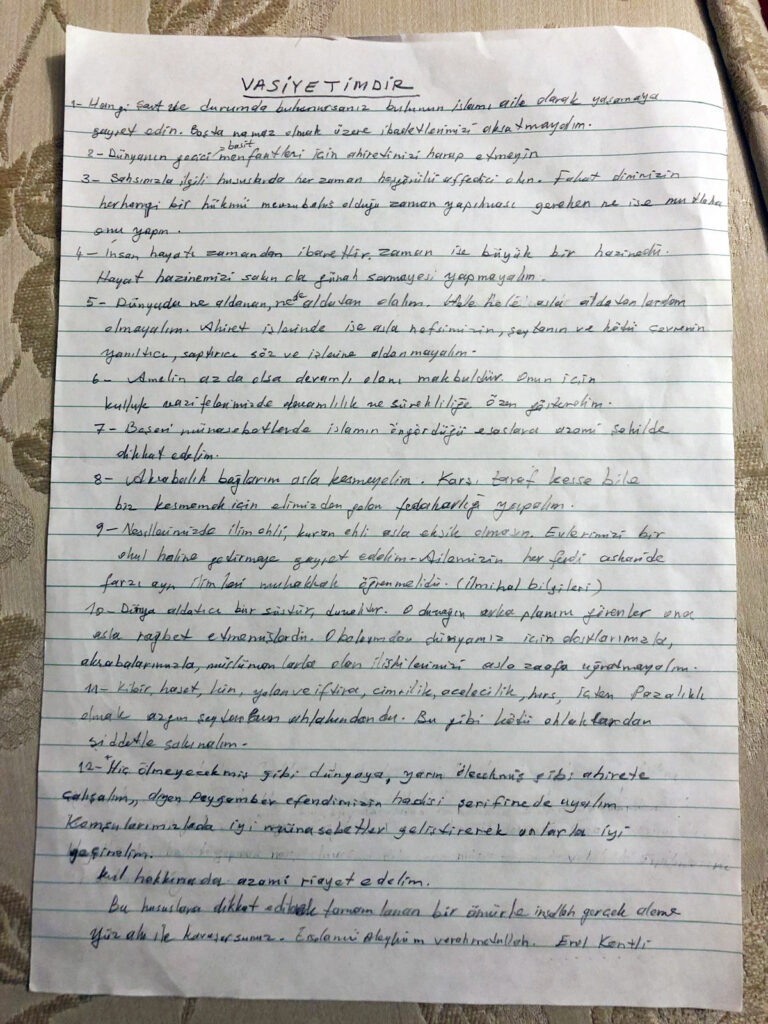 VASİYETİMDİR
1- Hangi şart ve durumda bulunursanız bulunun islamı aile olarak yaşamaya
gayret edin. Başta namaz olmak üzere ibadetlerimizi aksatmayalım.
2- Dünyanın geçici basit menfaatleri için ahiretimizi harap etmeyin
3- Şahsımızla ilgili hususlarda her zaman hoşgörülü affedici olun. Fakat dinimizin
herhangi bir hükmü mevzubahis olduğu zaman yapılması gereken ne ise mutlaka
onu yapın.
4- İnsan hayatı zamandan ibarettir, zaman ise büyük bir hazinedir.
Hayat hazinemizi sakın ola günah sermayesi yapmayalım.
5- Dünyada ne aldanan, ne de aldatan olalım. Hele hele asla aldatanlardan
olmayalım. Ahiret işlerinde ise asla nefsimizin, şeytanın ve kötü çevrenin
yanıltıcı, saptırıcı söz ve işlerine aldanmayalım.
6- Amelin az da olsa devamlı olanı makbuldür. Onun için
kulluk vazifelerimizde devamlılık ve sürekliliğe özen gösterelim.
7- Beşeri münasebetlerde islamın öngördüğü esaslara azami şekilde
dikkat edelim.
8- Akrabalık bağlarını asla kesmeyelim. Karşı taraf kesse bile
biz kesmemek için elimizden gelen fedakarlığı yapalım.
9- Nesillerimizde ilim ehli, kuran ehli asla eksik olmasın. Evlerimizi bir
okul haline getirmeye gayret edelim. Ailemizin her ferdi asharide
farzı ayn ilimleri muhakkak öğrenmelidir. (İlmihal bilgileri)
10- Dünya aldatıcı bir süstür, duraktır. O durağın arka planını görenler ona
asla rağbet etmemişlerdir. O bakımdan dünyamız için dostlarımızla,
akrabalarımızla, müslümanlarla olan ilişkilerimizi asla zaafa uğratmayalım.
11- Kibir, haset, kin, yalan ve iftira, cimrilik, acelecilik, hırs, içten pazarlıklı
olmak azgın şeytanların ahlakındandır. Bu gibi kötü ahlaklardan
şiddetle sakınalım.
12- "Hiç ölmeyecekmiş gibi dünyaya, yarın ölecekmiş gibi ahirete
çalışalım,, diyen peygamber efendimizin hadisi şerifine de uyalım.
Komşularımızlada iyi münasebetler geliştirerek onlarla iyi
geçinelim.
Kul hakkınada azami riayet edelim.
Bu hususlara dikkat edilerek tamamlanan bir ömürle inşallah gerçek aleme
yüz akı ile kavuşursunuz. Esselamü Aleyküm verahmetullah. Erol Kentli